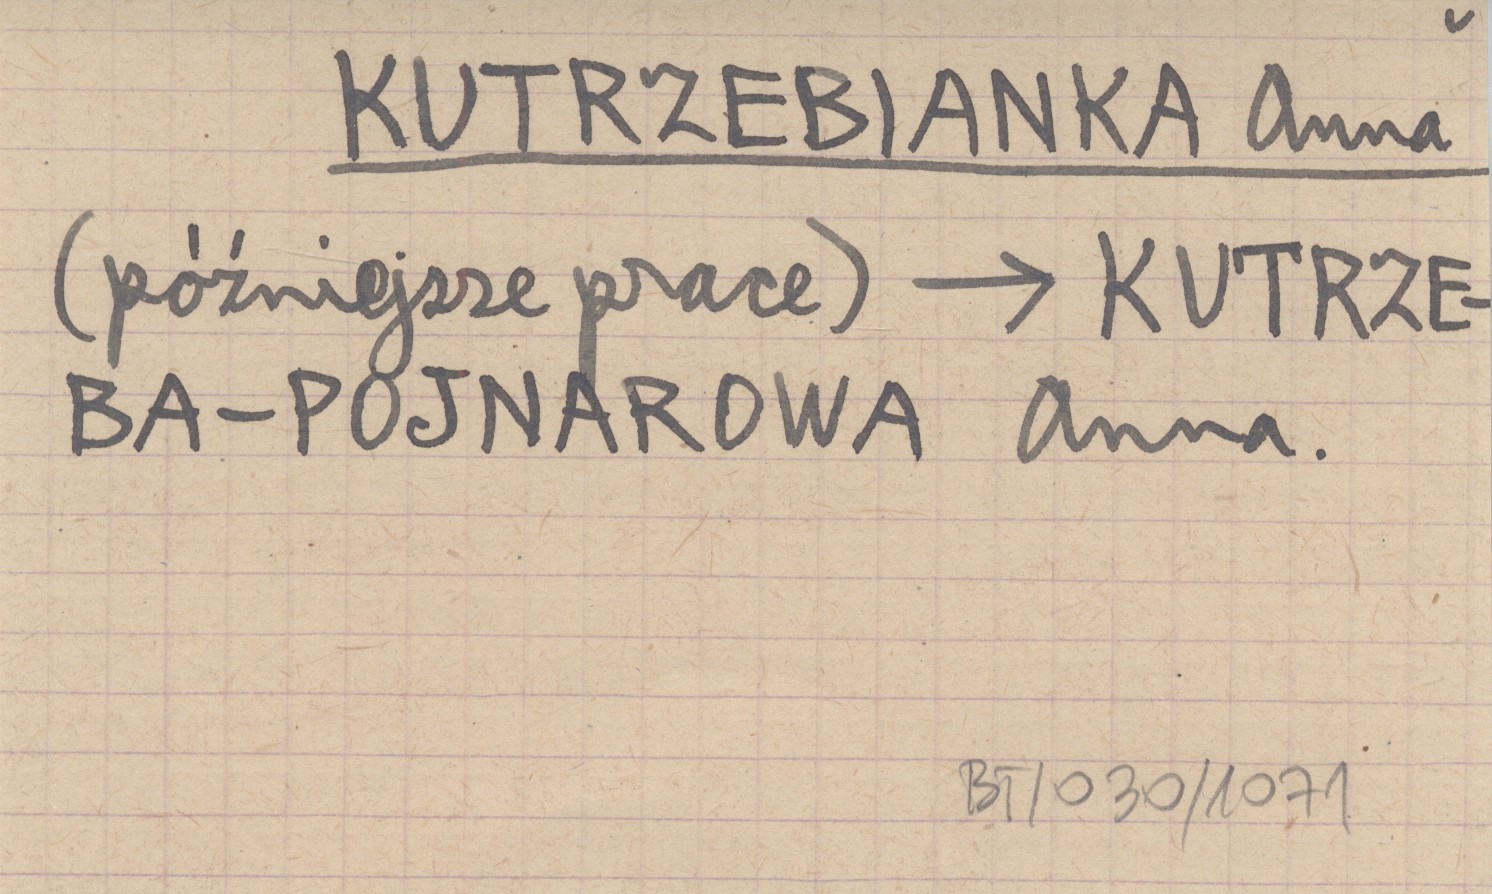 KUTRZEBIANKA Anna
(późniejsze prace) → KUTRZE-
BA-POJNAROWA Anna.
BT/030/1071